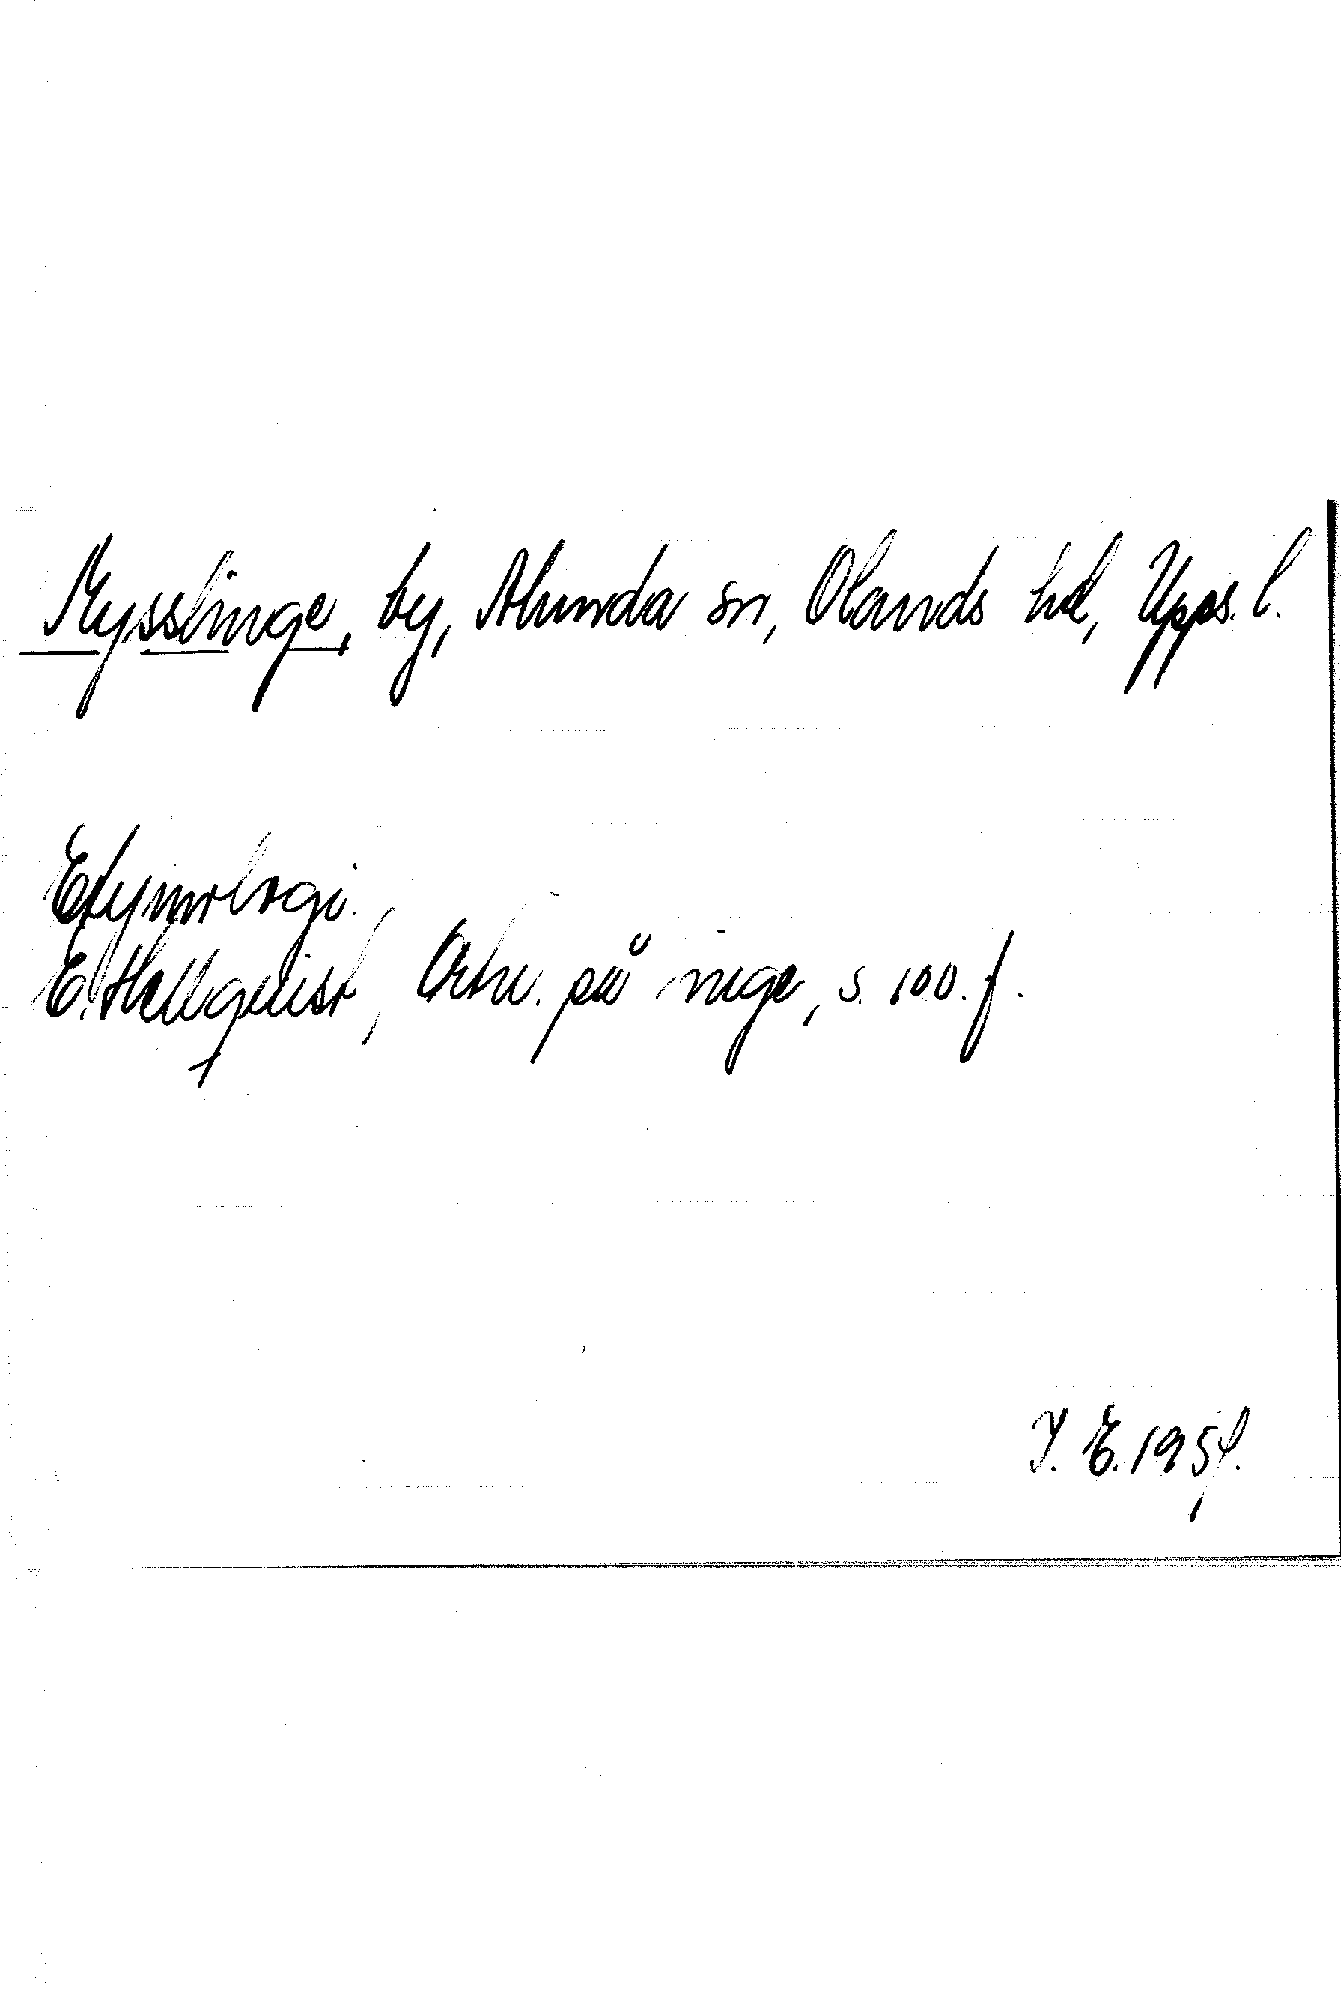 Mysslinge, by, Alunda sn, Olands hd, Upps. l.
Etymologi.
E. Hellquist, Ortn. på inge, s. 100. f.
I. E. 195